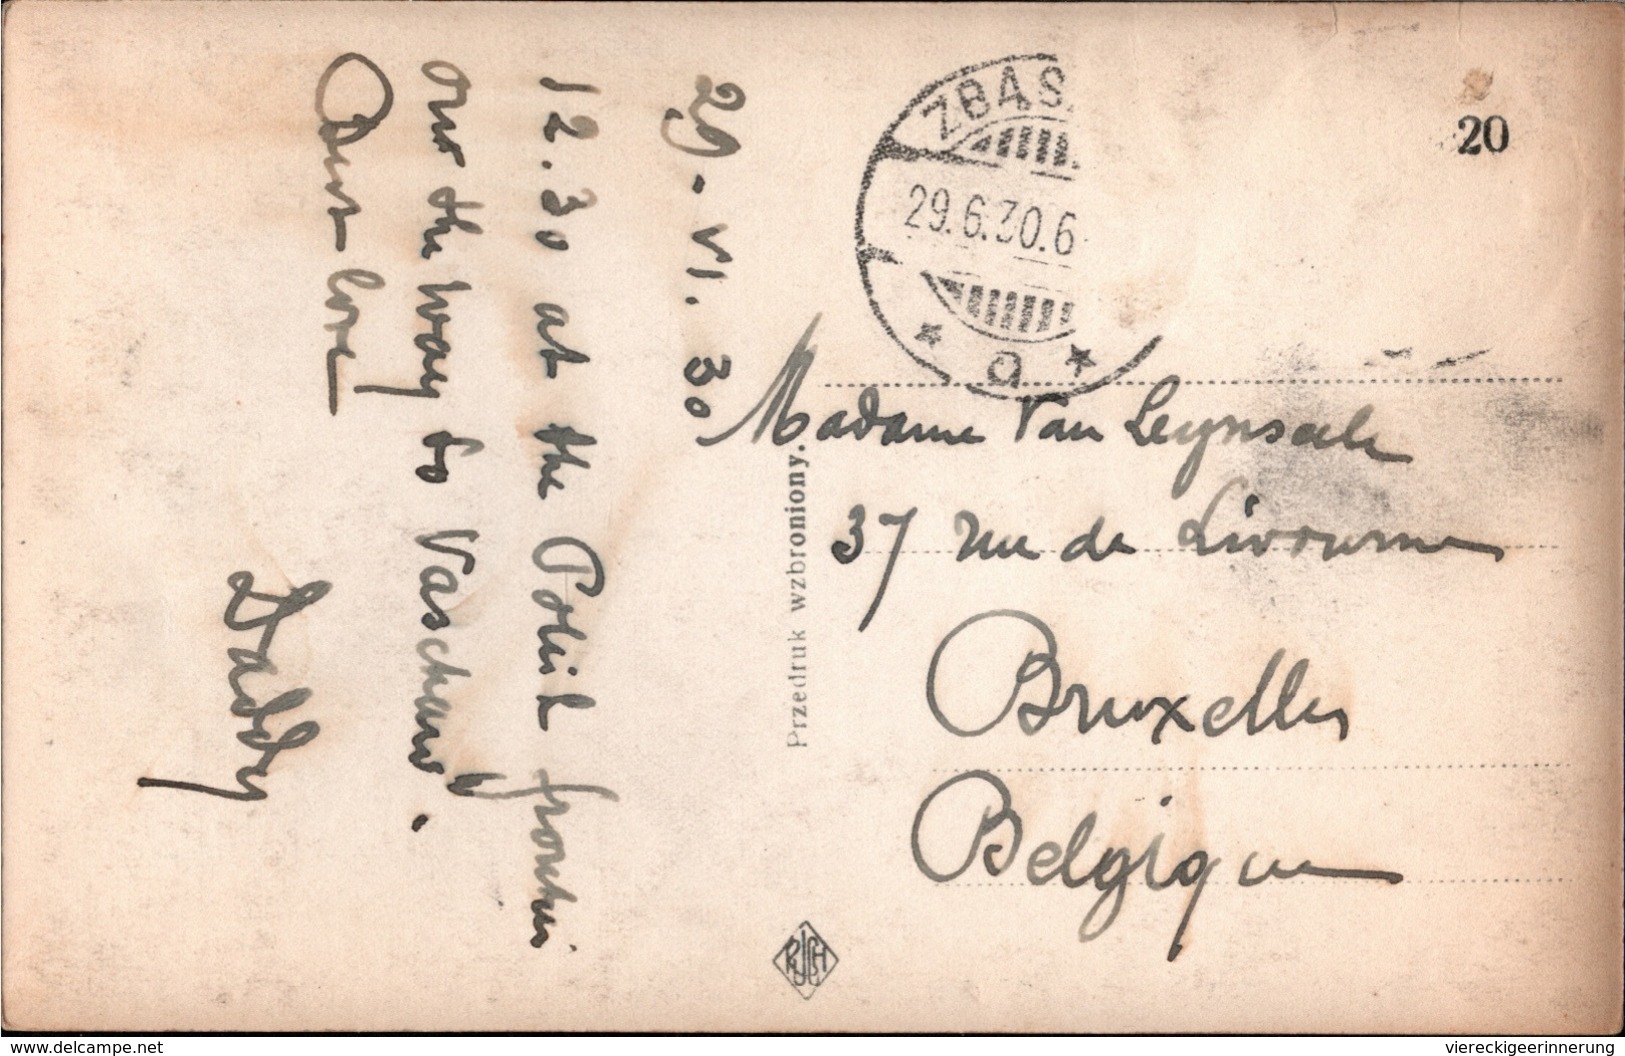 29-VI.30
12.30 at the Polish frontier
on the way to Varschaw.
Best love
Daddy
ZBĄS
29.6.30.6
a
20
Madame Van Leynseele
37 rue de Livourne
Bruxelles
Belgique
Przedruk wzbroniony.
www.delcampe.net
viereckigeerinnerung